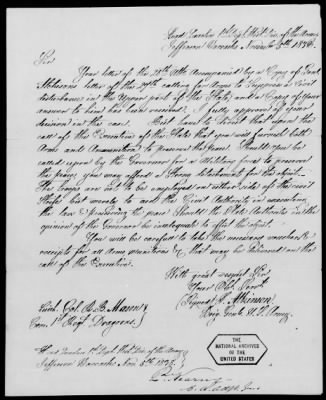 Head Quarters 1st Dept. West. Div. of the Army
Jefferson Barracks Novem 5th 1838.
Sir
Your letter of the 28th Ulto. Accompanied by a Copy of
letter of the 27th calling for Arms to Suppress a Civil
disturbance in the Upper part of the State, and a Copy of your
answer to hand has been received. I fully approve of your
decision in the case. But have to direct that upon the
call of the Executive of the State that you will furnish both
Arms and Ammunition to preserve the peace. Should you be
called upon by the Governor for a Military force to preserve
the peace, you may afford a Strong detachment for the
The troops are not to be employed on either side of the civil
Strife but merely to aid the Civil Authority in executing
the law & preserving the peace should the State Authorities in the
opinion of the Governor be inadequate to effect the object.
You will be careful to take the necessary vouchers &
receipts for all Arms munitions &c that may be delivered on the
call of the Executive.
With great respect Sir
Your Obt. Servt.
(Signed) H. Atkinson
Brig. Genl. U.S. Army
Lieut. Col. R. B. Mason
Com. 1st Regt Dragoons
Head Quarters 1st Dept. West. Div. of the Army
Jefferson Barracks Nov. 5th 1838
THE NATIONAL
ARCHIVES
OF THE
UNITED STATES